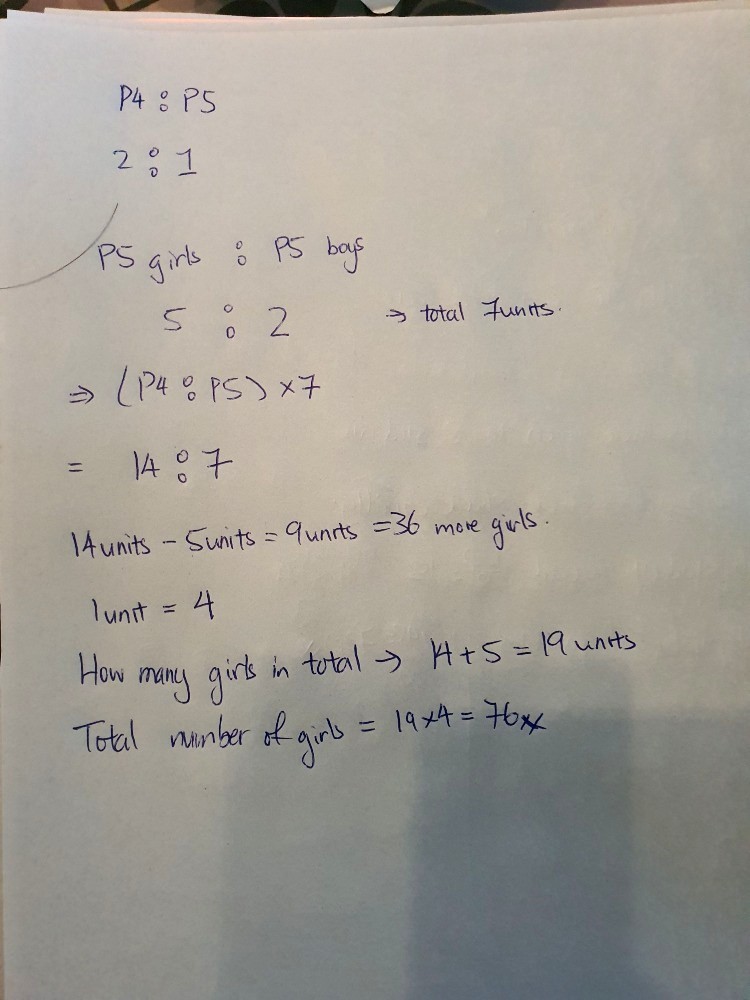 P4 : P5
2 : 1
P5 girls : P5 boys
5 : 2 → total 7units.
⇒ (P4 : P5) ×7
= 14 : 7
14units - 5units = 9units = 36 more girls.
1unit = 4
How many girls in total → 14 + 5 = 19 units
Total number of girls = 19×4 = 76